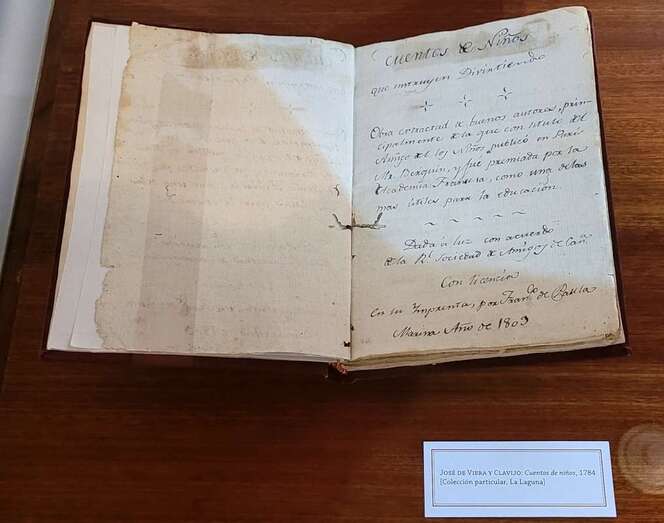 Cuentos de Niños
que instruyen Divirtiendo
Obra extractada de buenos autores, prin-
cipalmente de la que con titulo del
Amigo de los Niños, publicó en Paris
Mr. Berquin, y fue premiada por la
Academia Francesa, como una de las
mas utiles para la educación.
Dada á luz con acuerdo
de la Rl. Sociedad de Amigos de Cana.
Con licencia
En su Imprenta, por Frando. de Paula
Marina Año de 1803
JOSÉ DE VIERA Y CLAVIJO: Cuentos de niños, 1784
[Colección particular, La Laguna]